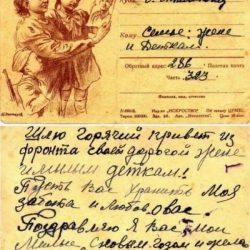 Кому: Семье: жене
и Деткам.
Обратный адрес: 286 Полевая почта
часть 393
Шлю горячий привет из
фронта своей дорогой жене
и милым деткам!
Пусть Вас хранить Моя
забота и любовь о Вас.
Поздравляю Я Вас мои
Милые, с новым годом и